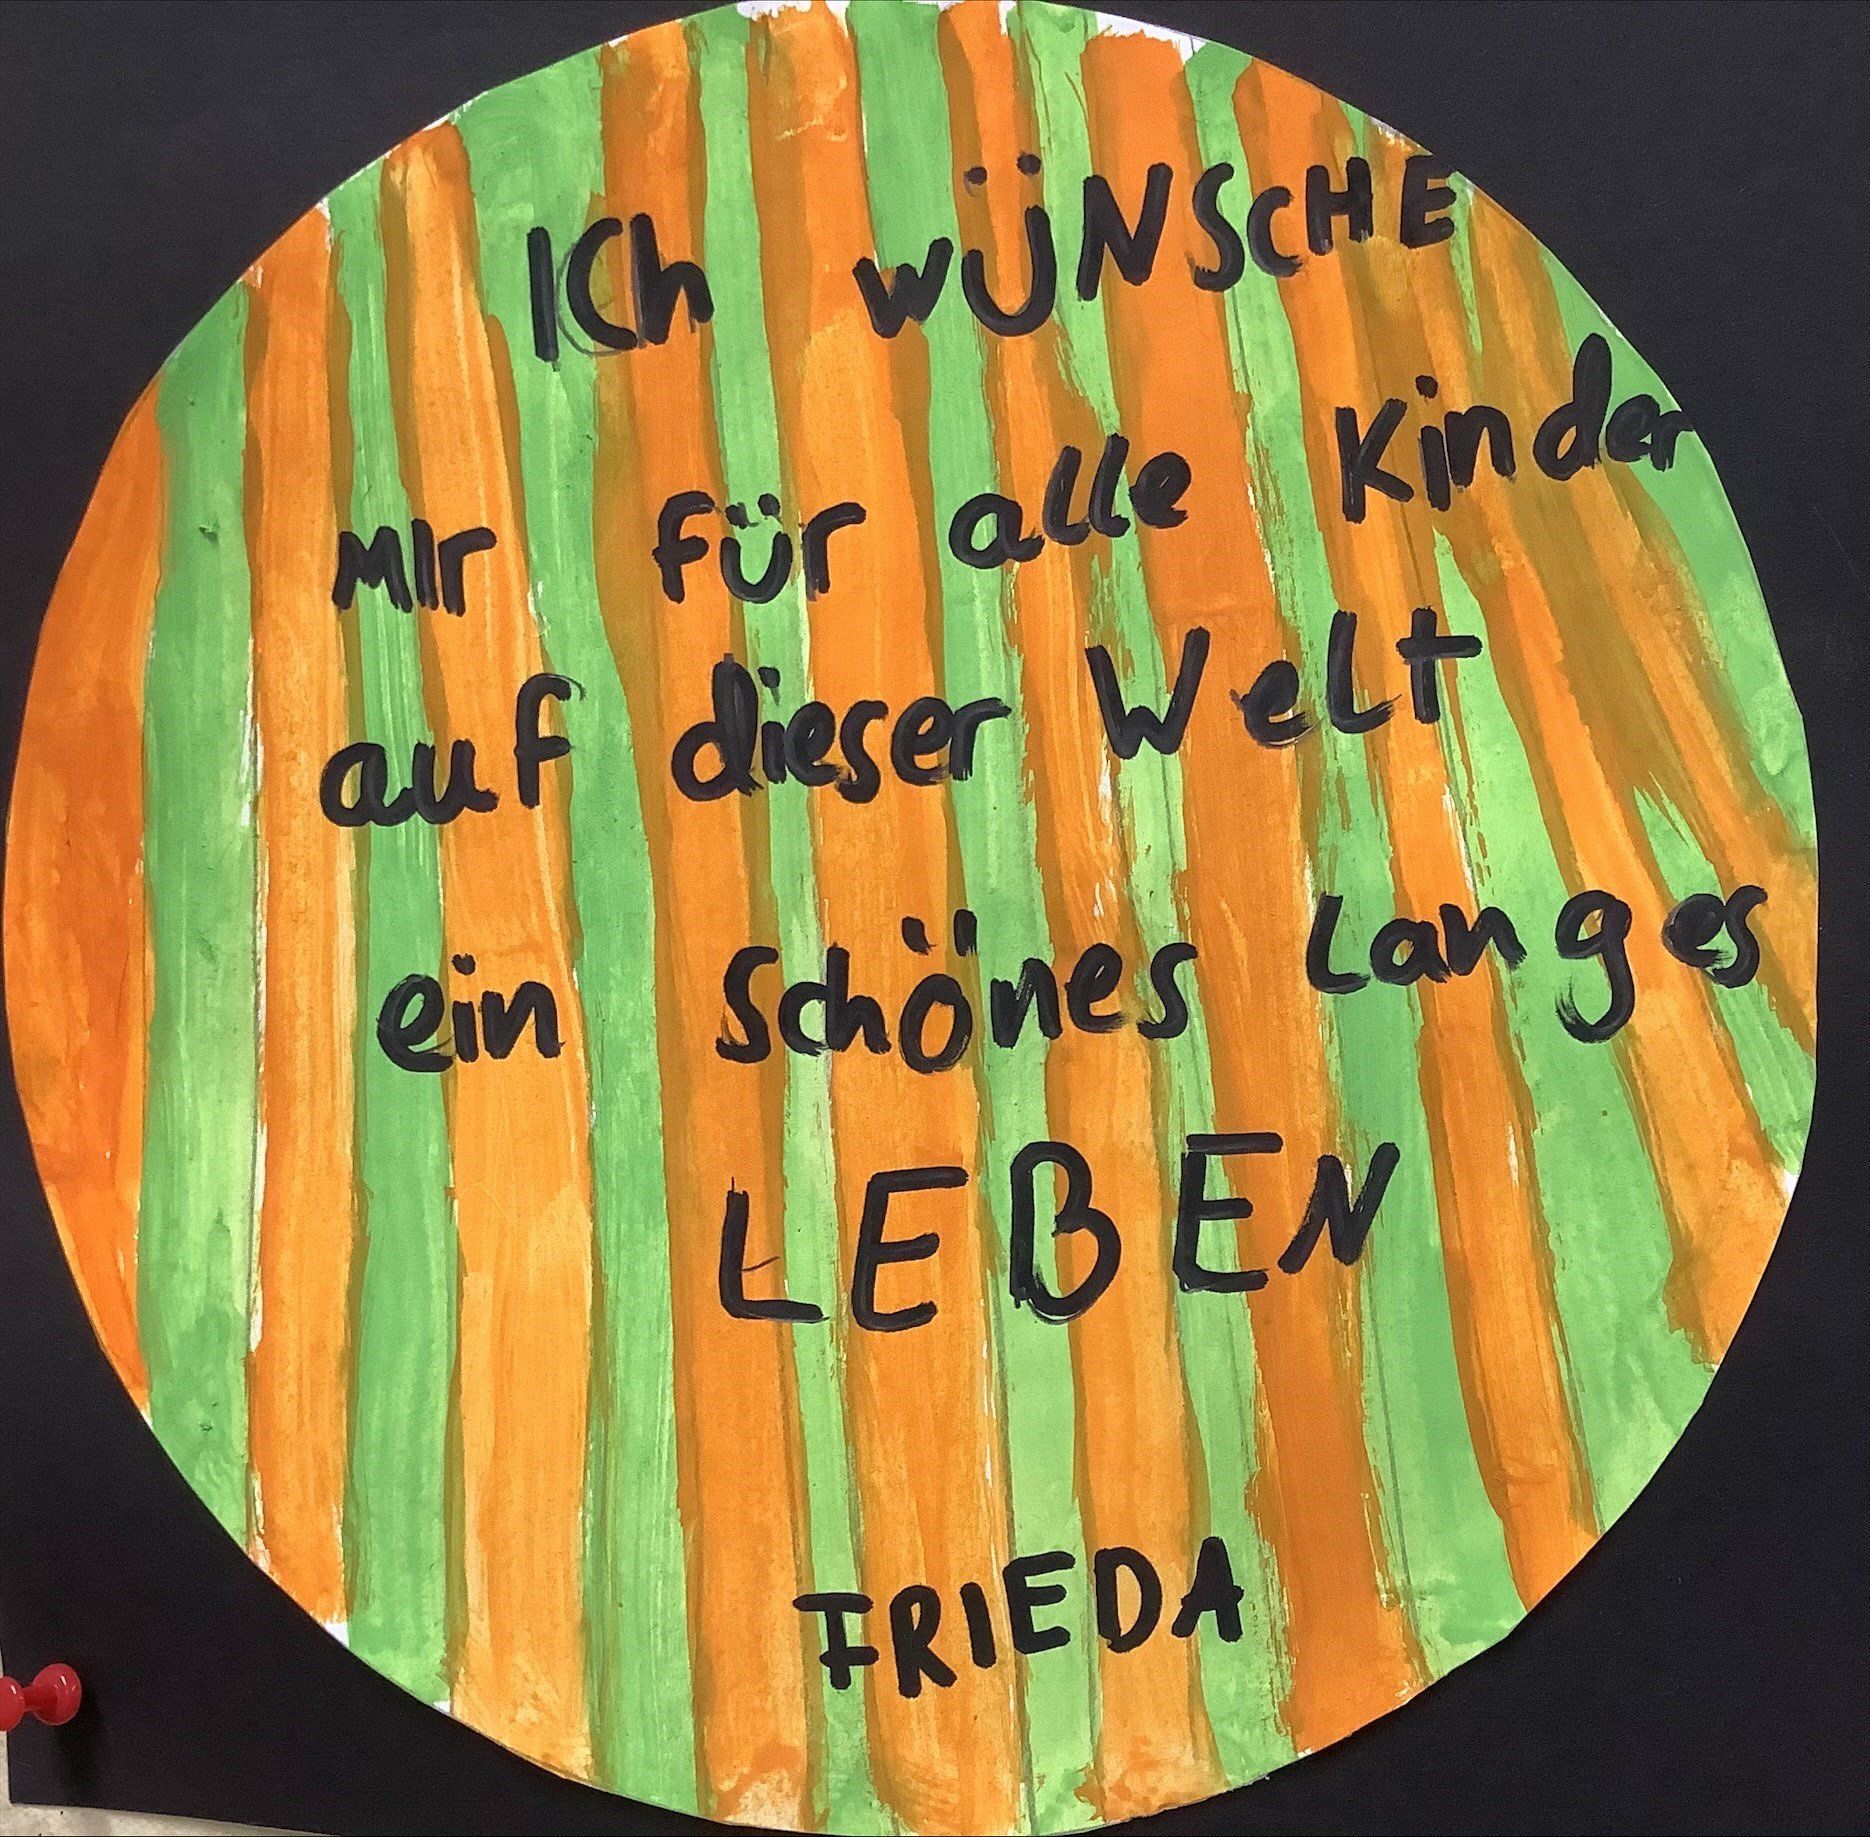 ICh WÜNSCHE
MIr für alle Kinder
auf dieser Welt
ein schönes Langes
LEBEN
FRIEDA